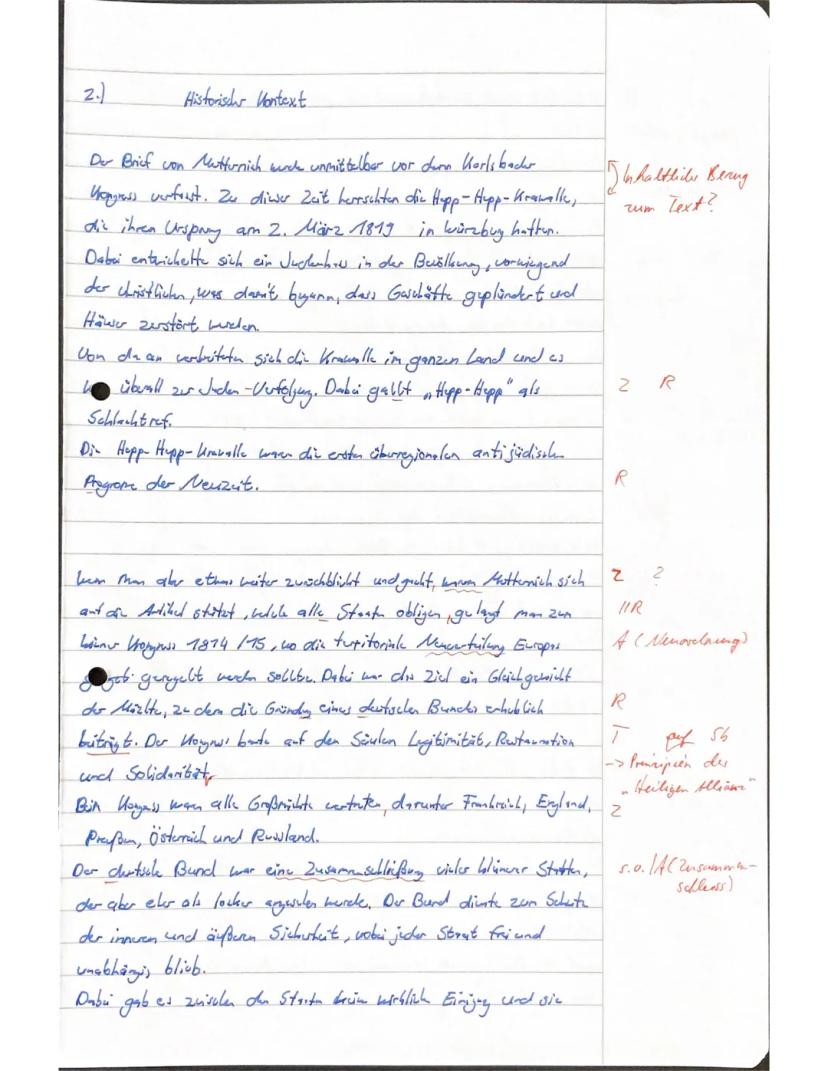 2.) Historischer Kontext
Der Brief von Metternich wurde unmittelbar vor dem Karlsbader
Kongress verfasst. Zu dieser Zeit herrschten die Hepp-Hepp-Krawalle,
die ihren Ursprung am 2. März 1819 in Würzburg hatten.
Dabei entwickelte sich ein Judenhass in der Bevölkerung, vorwiegend
der christlichen, was damit begann, dass Geschäfte geplündert und
Häuser zerstört wurden.
Von da an verbreiteten sich die Krawalle im ganzen Land und es
überall zur Juden-Verfolgung. Dabei gallt „Hepp-Hepp" als
Schlachtruf.
Die Hepp-Hepp-Krawalle waren die ersten überregionalen antijüdischen
Progrome der Neuzeit.
Wenn man aber etwas weiter zurückblickt und, warum Metternich sich
auf die Artikel stützt, welche alle Staaten obligen, gelangt man zum
Wiener Kongress 1814/15, wo die territoriale Neuverteilung Europas
geregelt werden sollte. Dabei war das Ziel ein Gleichgewicht
der Mächte, zu dem die Gründung eines deutschen Bundes erheblich
beiträgt. Der Kongress baute auf den Säulen Legitimität, Restauration
und Solidarität,
Beim Kongress waren alle Großmächte vertreten, darunter Frankreich, England,
Preußen, Österreich und Russland.
Der deutsche Bund war eine Zusammenschließung vieler kleinerer Staaten,
der aber eher als locker angesehen wurde. Der Bund diente zum Schutz
der inneren und äußeren Sicherheit, wobei jeder Staat frei und
unabhängig blieb.
Dabei gab es zwischen den Staaten keine wirklich Einigung und sie
Inhaltlicher Bezug
zum Text?
Z R
R
Z ?
IIR
A (Neuordnung)
R
T Sb
-> Prinzipien der
„Heiligen Allianz"
Z
s.o. /A (Zusammen-
schluss)